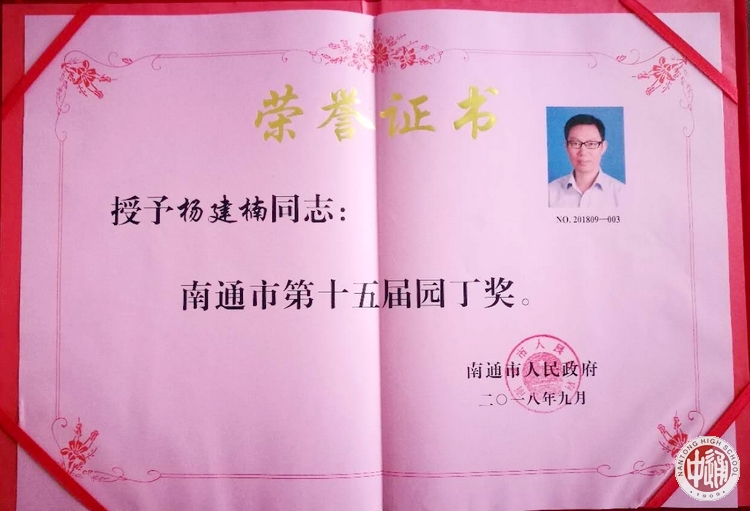 荣誉证书
NO. 201809—003
授予杨建楠同志：
南通市第十五届园丁奖。
南通市人民政府
二〇一八年九月
NANTONG HIGH SCHOOL
1909